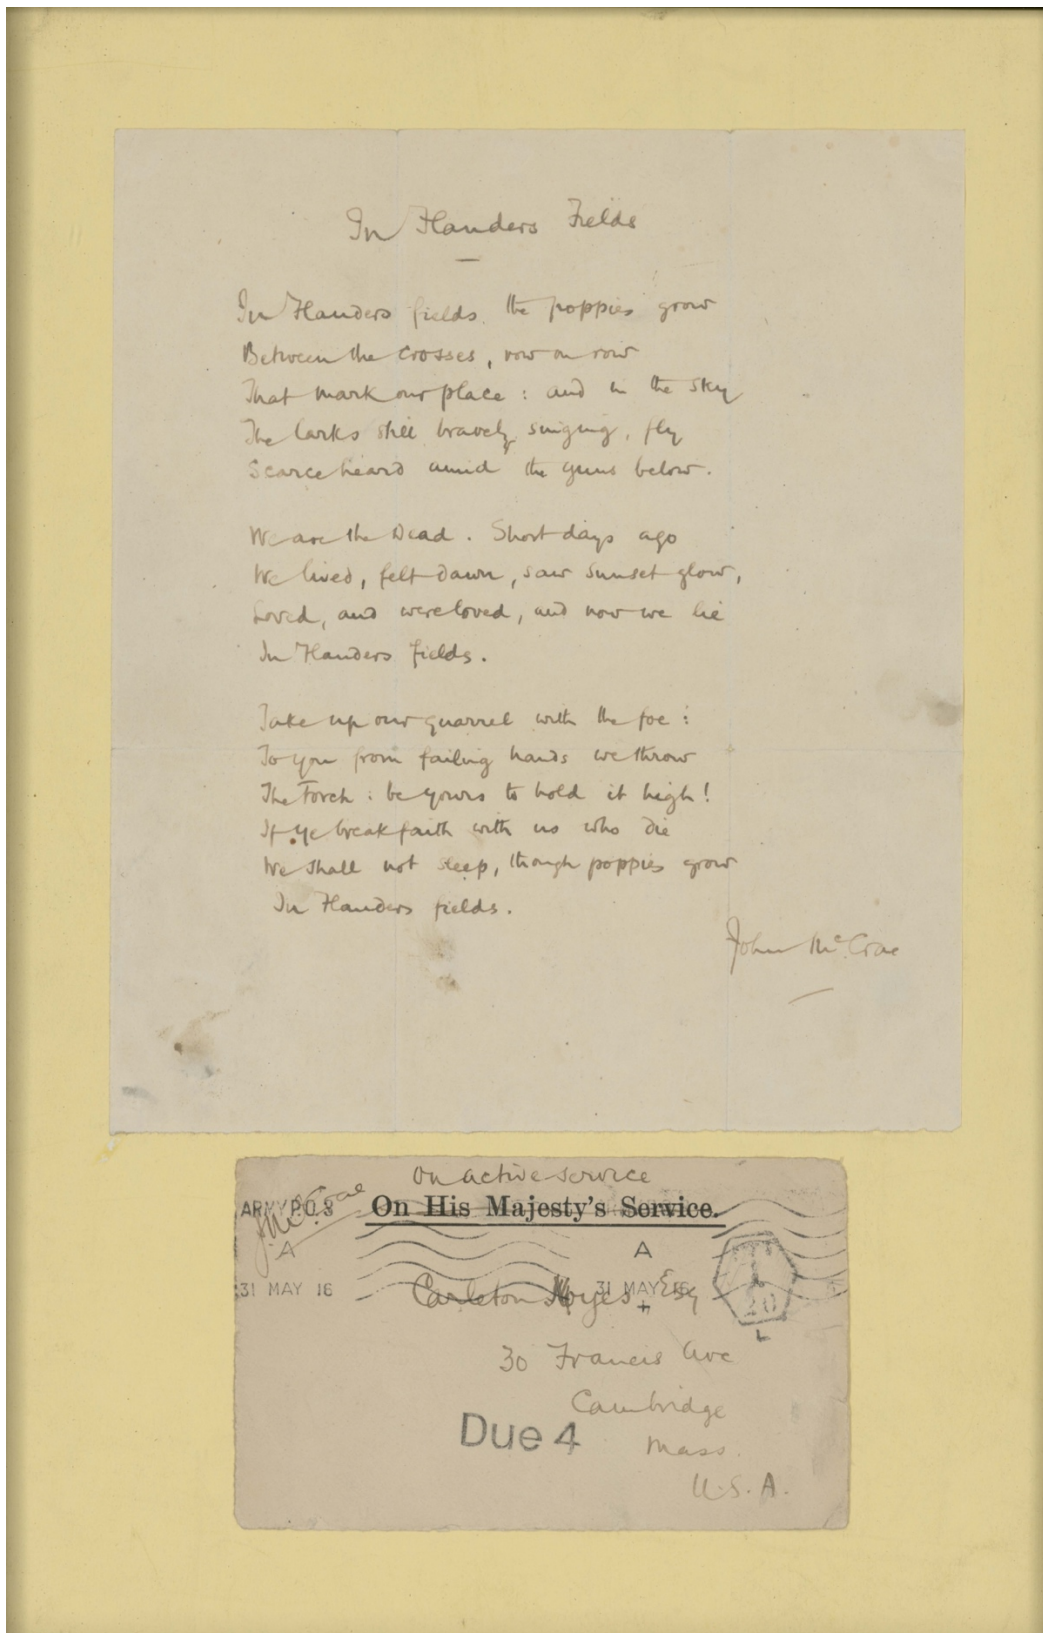 In Flanders Fields
In Flanders fields the poppies grow
Between the crosses, row on row
That mark our place : and in the sky
The larks still bravely singing, fly
Scarce heard amid the guns below.
We are the Dead. Short days ago
We lived, felt dawn, saw sunset glow,
Loved, and were loved, and now we lie
In Flanders fields.
Take up our quarrel with the foe :
To you from failing hands we throw
The Torch : be yours to hold it high!
If ye break faith with us who die
We shall not sleep, though poppies grow
In Flanders fields.
John McCrae
On active service
ARMY P.O. 8
On His Majesty's Service.
J McCrae
A
A
31 MAY 16
31 MAY 16
Carleton Noyes Esq
T
20
L
30 Francis Ave
Cambridge
Due 4
Mass.
U.S.A.